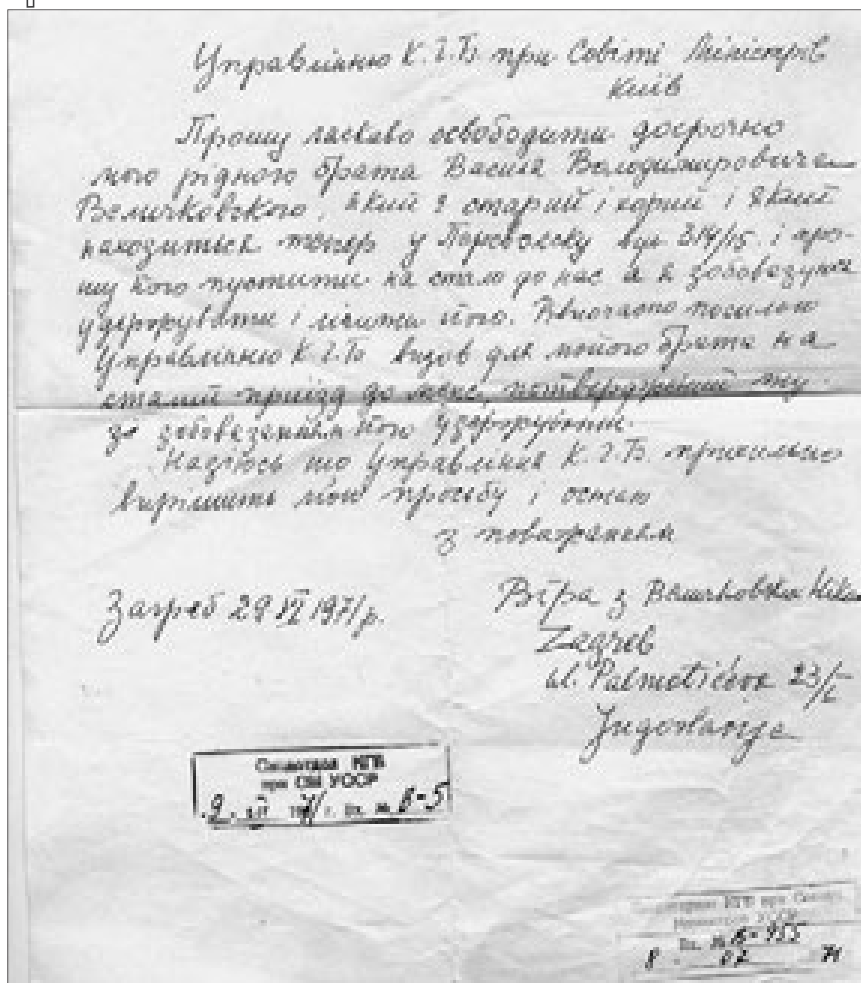 Управлінню К.Г.Б. при Совіті Міністрів
Київ
Прошу ласкаво освободити досрочно
мого рідного брата Василя Володимировича
Величковського, який є старий і хорий і який
находиться тепер у і про-
шу його пустити на стало до нас а я зобовязуюся
удержувати і лічити його. Рівночасно посилаю
Управлінню К.Г.Б. визов для мойого брата на
сталий приїзд до мене, потверджений
зобовязанням його удержування.
Надіюсь що Управління К.Г.Б. прихильно
вирішить мою просьбу і остаю
з поважанням
Загреб 29 VI 1971 р.
Віра з
Zagreb
ul. Palmotićeva 23/I
Jugoslavija
КГБ
при СМ УССР
9. г. Вх. № В-5
КГБ при
УССР
Вх. № В-955
8 07 71